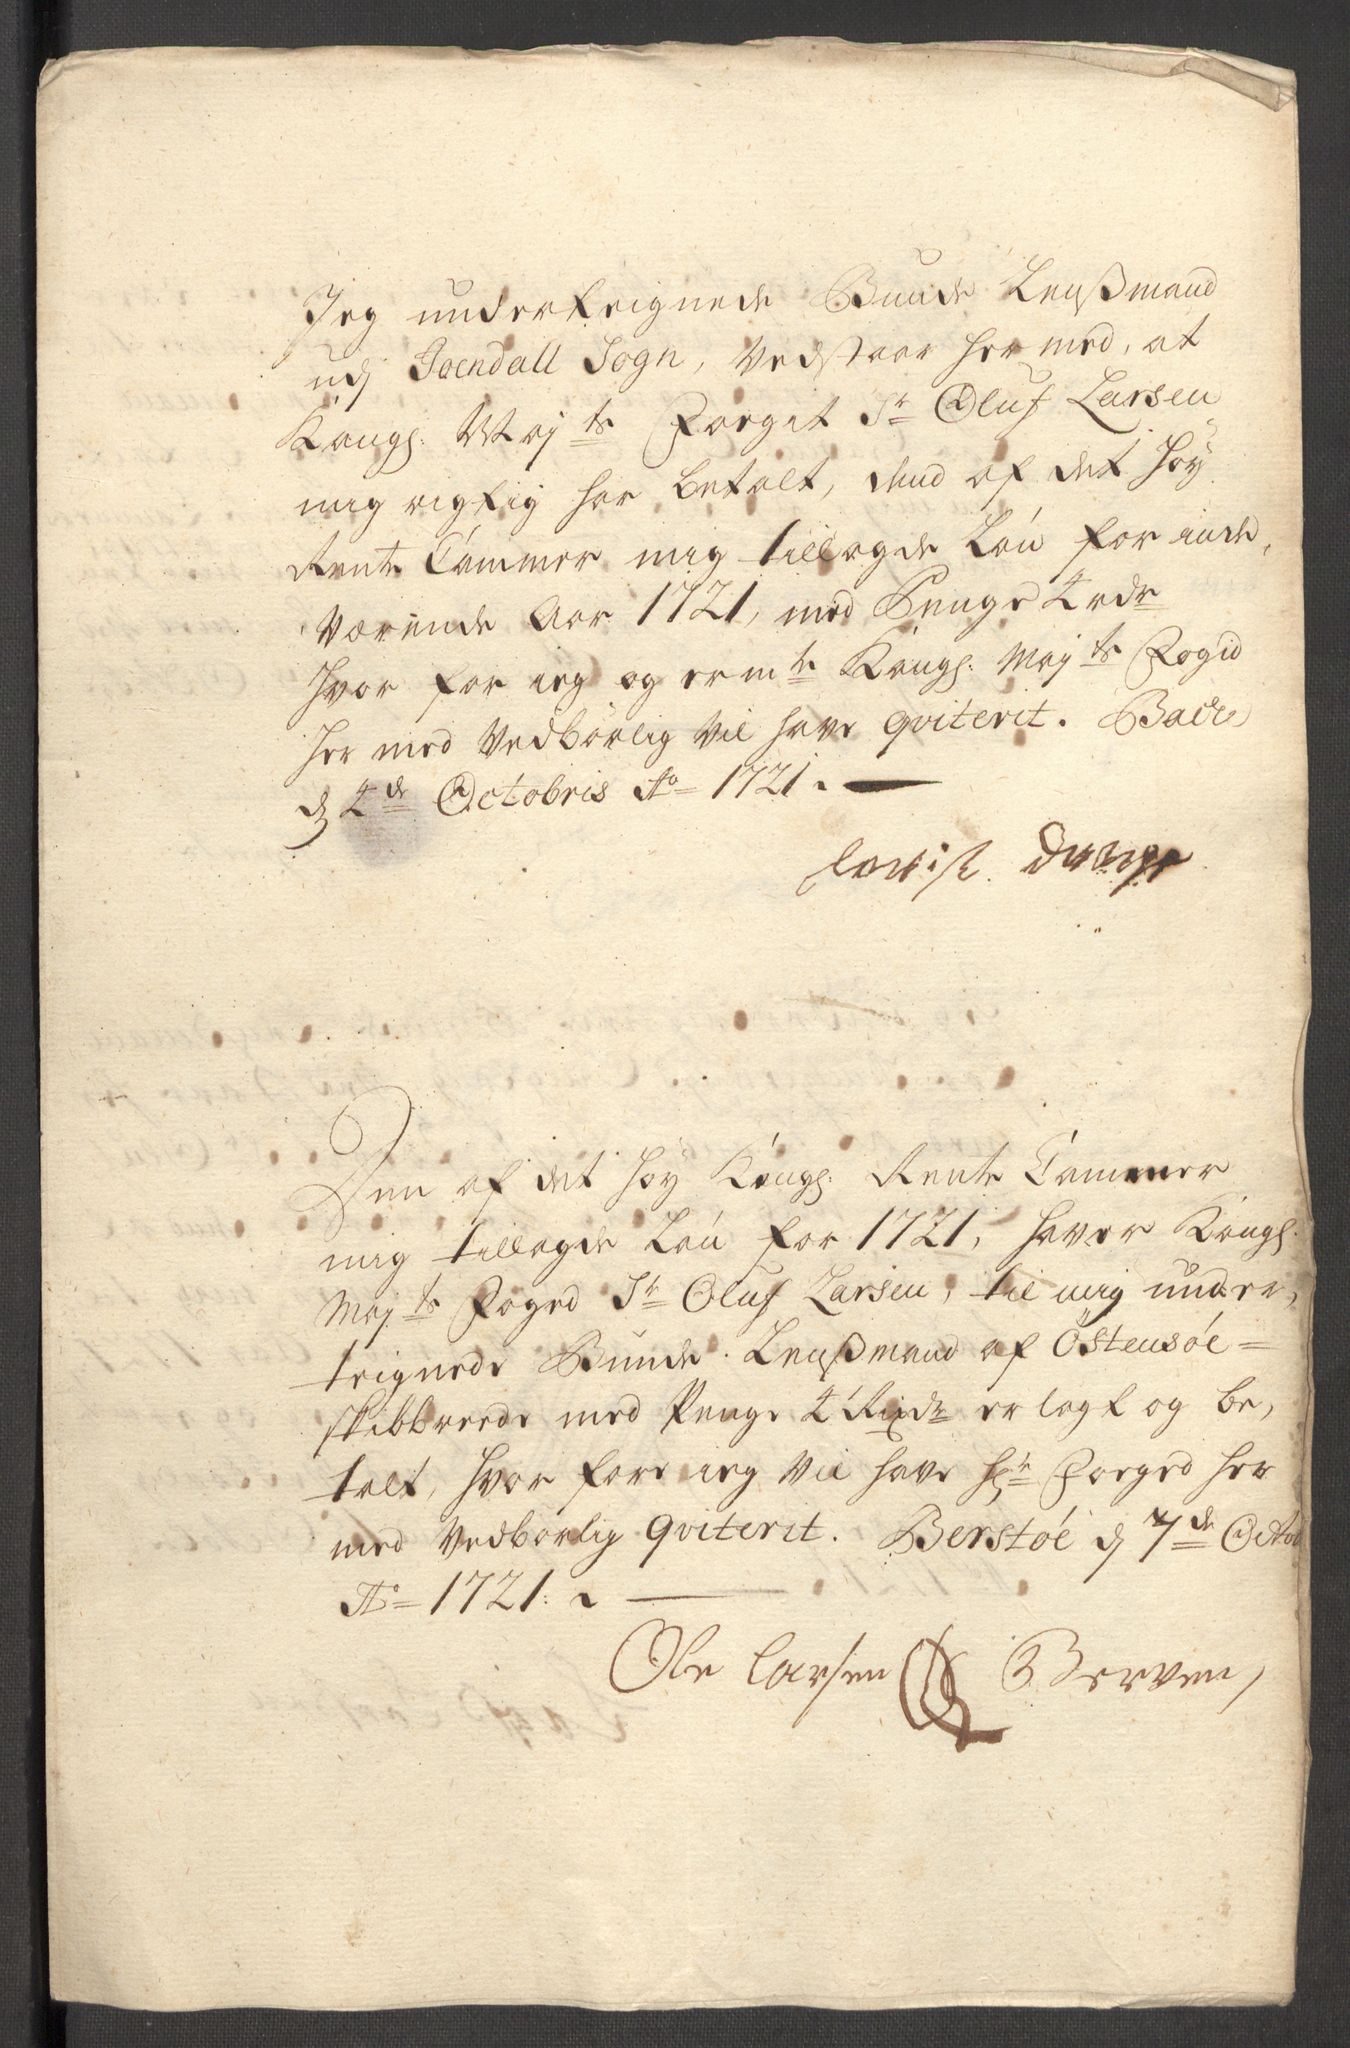 Jeg underteignede Bunde Lenßmand
udj Joendall Sogn, Vedstaar her med, at
Kongl: Maj ts Foeget Sr Oluf Larsen
mig rigtig har betalt, dend af det höy
Rente Cammer mig tillagde Lön for inde,
værende Aar 1721, med Penge 4 rdr
hvor for ieg og ermte Kongl: Maj ts Fogid
her med Vedbörlig vil have qviterit.
d 4de Octobris Ao 1721.
Den af det höy Kongl: Rente Cammer
mig tillagde Lön for 1721, haver Kongl:
Maj ts Foged Sr Oluf Larsen, til mig under,
teignede Bunde Lenßmand af Östensöe=
skibbreede med Penge 4 Rixdr erlagt og be,
talt, hvor fore ieg vil have Hr Foeged her
med Vedbörlig qviterit. Berstöe d 7de Octob
Ao 1721.
Ole Larsen Berven